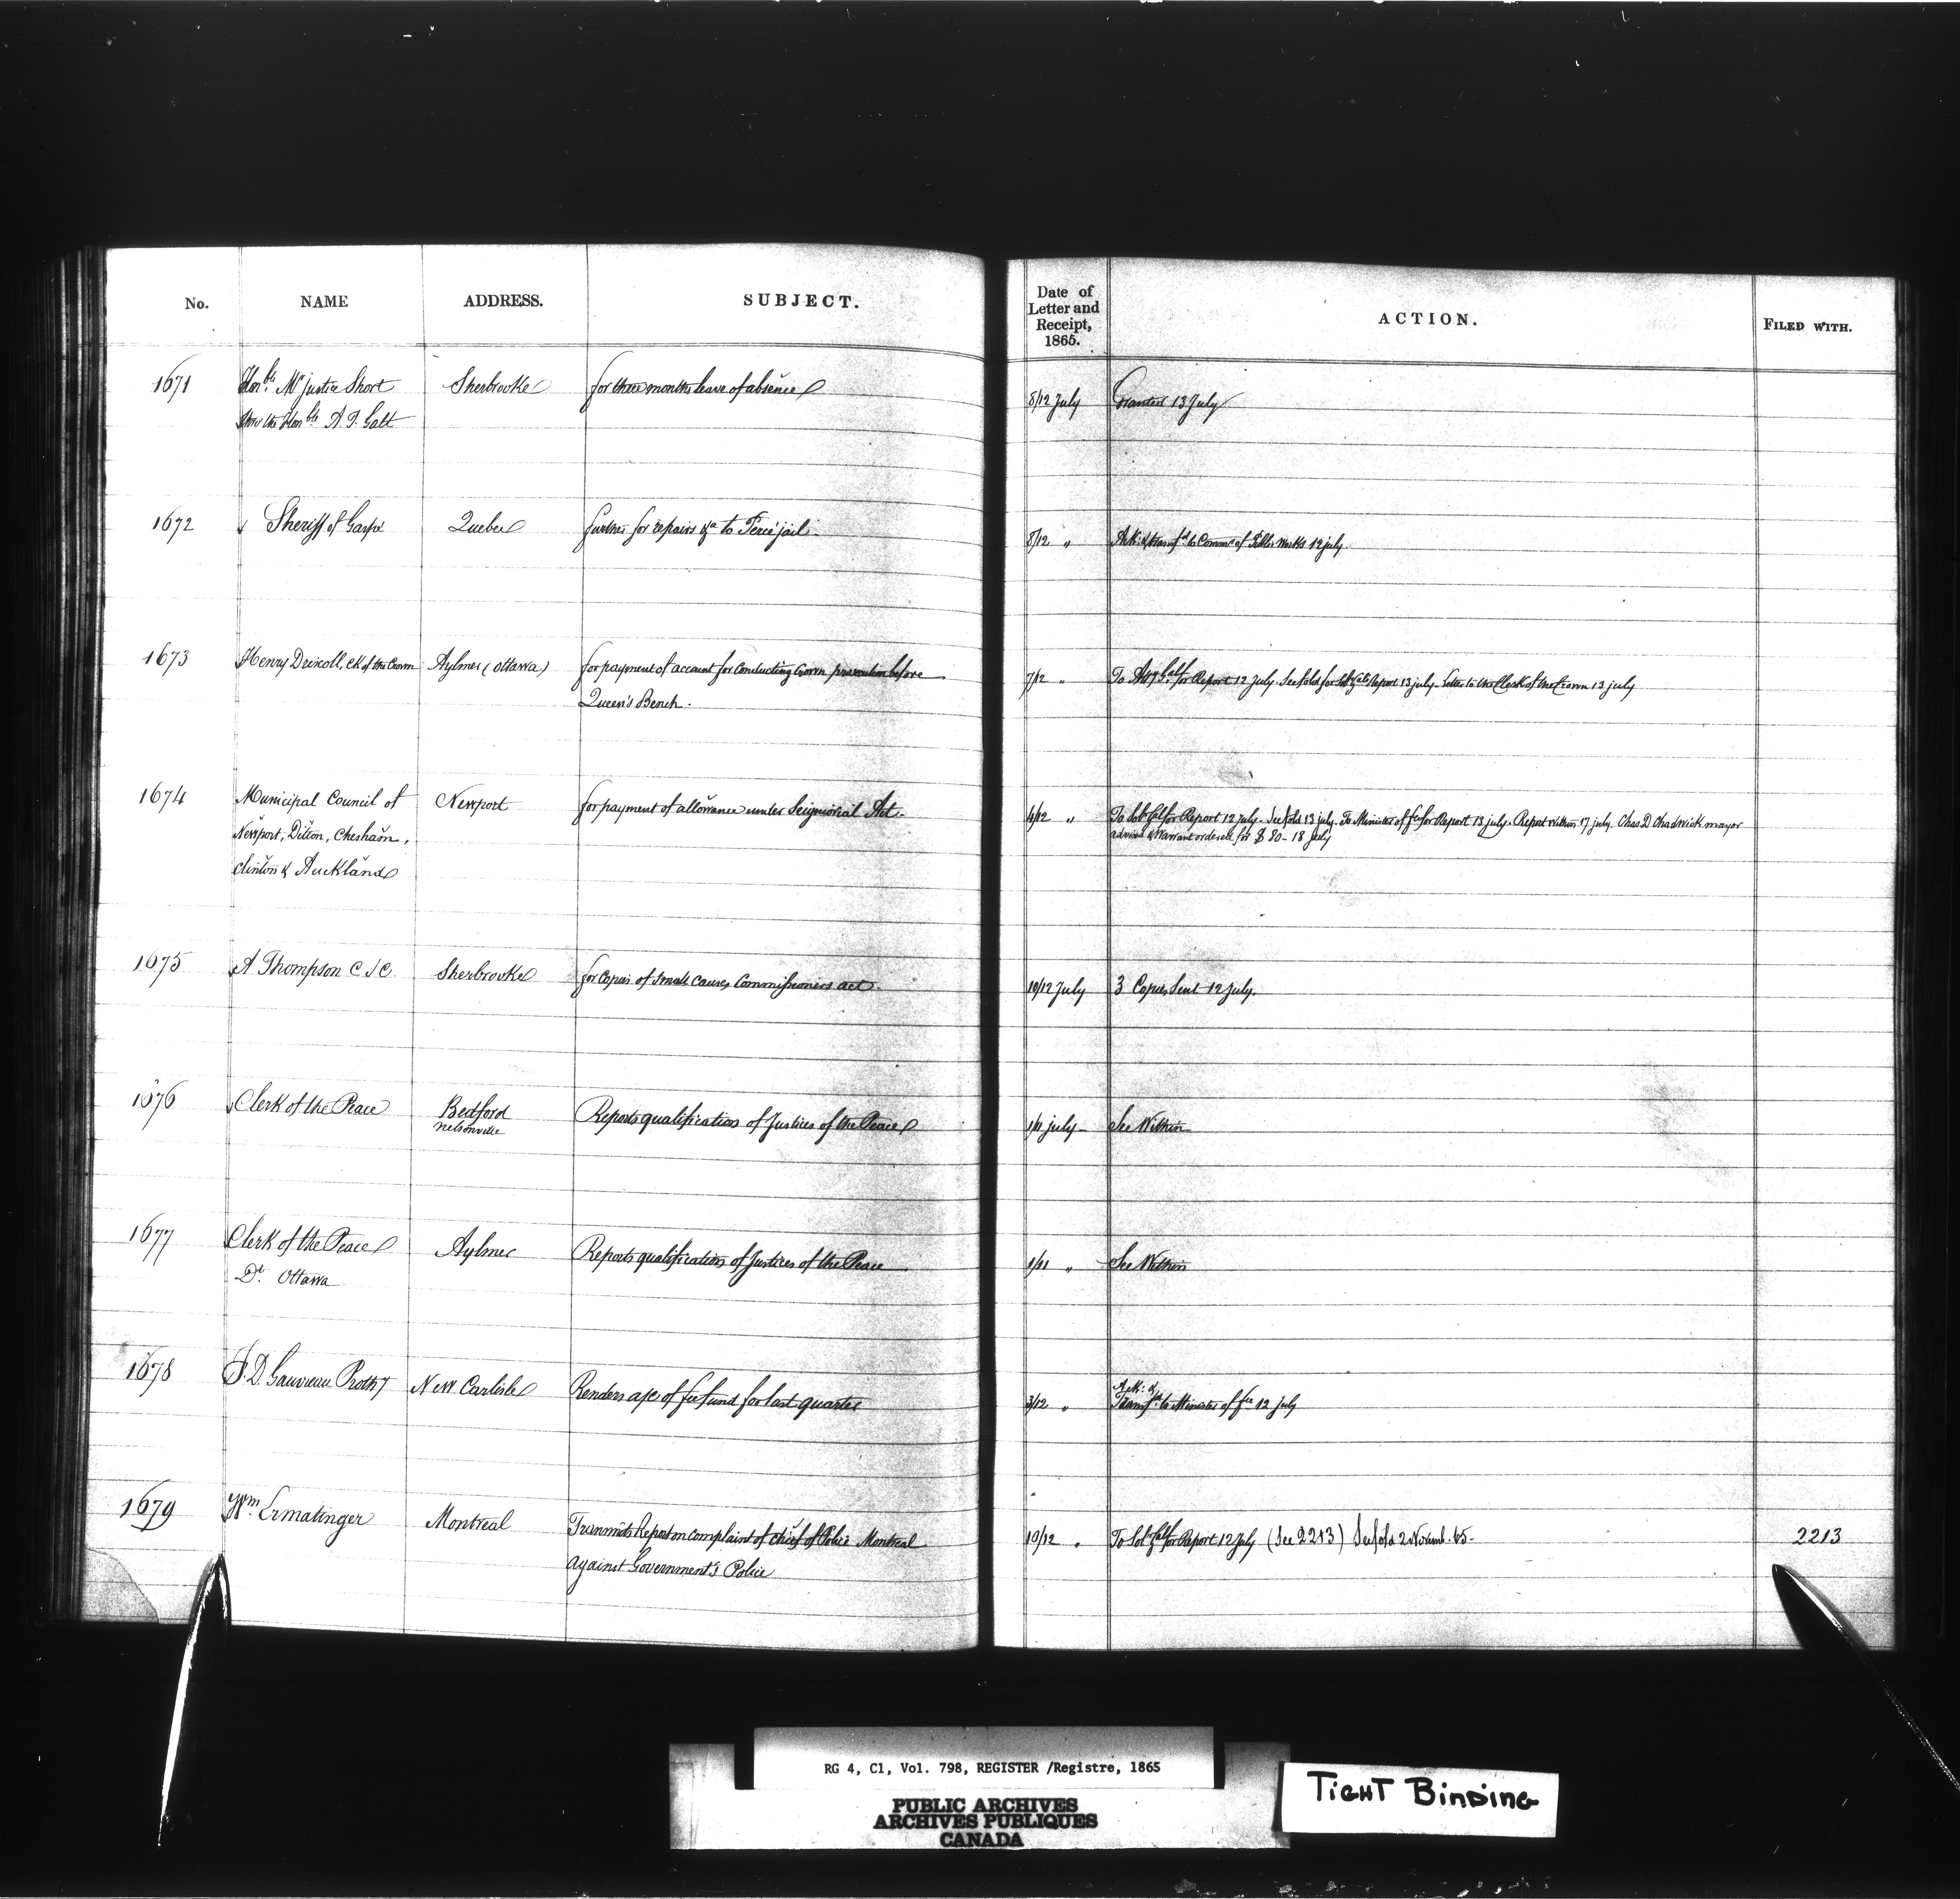 No. NAME ADDRESS. SUBJECT. Date of Letter and Receipt, 1865. ACTION. FILED WITH.
1671 Honble Mr justice Short Sherbrooke for three months leave of absence 8/12 July Granted 13 July
thro the Honble A. T. Galt
1672 Sheriff of Gaspé Quebec further for repairs &a to Percé jail. 8/12 " Ack: & transfd to Commr of Public Works 12 july
1673 Henry Driscoll, Ck of the Crown Aylmer (Ottawa) for payment of account for conducting Crown prosecution before 7/12 " To Atty Genl for Report 12 July. See fold for Sol Genls Report 13 july. Letter to the Clerk of the Crown 13 july
Queen's Bench.
1674 Municipal Council of Newport for payment of allowance under Seigniorial Act. 4/12 " To Sol Genl for Report 12 july. See fold 13 july. To Minister of fce for Report 13 july. Report within 17 july. Chas D Chadwick mayor
Newport, Ditton, Chesham, advised & Warrant ordered for $ 50 - 18 July
Clinton & Auckland
1675 A Thompson C S C Sherbrooke for Copies of Small Causes Commissioners act. 10/12 July 3 Copies Sent 12 July.
1676 Clerk of the Peace Bedford Reports qualification of Justices of the Peace 1/11 july See Within
Nelsonville
1677 Clerk of the Peace Aylmer Reports qualifications of Justices of the Peace 1/11 " See Within
Dt. Ottawa
1678 J. D. Gauvreau Prothy New Carlisle Renders a/c of fee fund for last quarter 3/12 " Ack: &
Transfd to Minister of fce 12 july
1679 Wm. Ermatinger Montreal Transmits Report on complaint of chief of Police Montreal 10/12 " To Sol Genl for Report 12 July (See 2213) See fold 2 Novemb. 65. 2213
against Government's Police
RG 4, C1, Vol. 798, REGISTER /Registre, 1865
PUBLIC ARCHIVES
ARCHIVES PUBLIQUES
CANADA
TIGHT BINDING